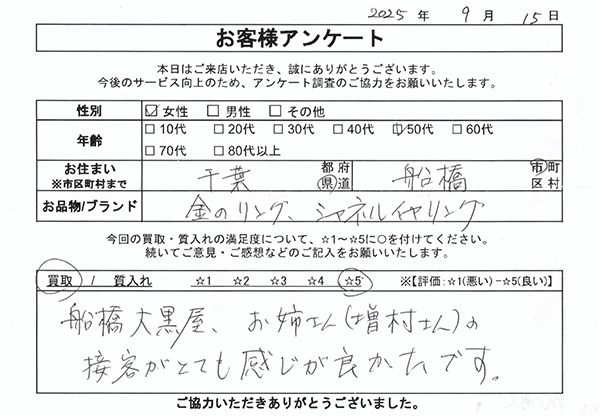 2025 年 9 月 15 日
お客様アンケート
本日はご来店いただき、誠にありがとうございます。
今後のサービス向上のため、アンケート調査のご協力をお願いいたします。
性別 ☑ 女性 □ 男性 □ その他
年齢 □ 10代 □ 20代 □ 30代 □ 40代 ☑ 50代 □ 60代
□ 70代 □ 80代以上
お住まい ※市区町村まで 千葉 都府県道 船橋 市町区村
お品物/ブランド 金のリング、シャネルイヤリング
今回の買取・質入れの満足度について、☆1～☆5に○を付けてください。
続いてご意見・ご感想などのご記入をお願いいたします。
買取 / 質入れ ☆1 ☆2 ☆3 ☆4 ☆5 ※【評価:☆1(悪い)－☆5(良い)】
船橋大黒屋、お姉さん(増村さん)の
接客がとても感じが良かたです。
ご協力いただきありがとうございました。